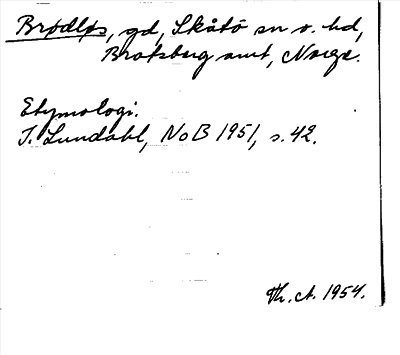 Brødløs, gd, Skåtö sn o. hd,
Bratsberg amt, Norge.
Etymologi.
I. Lundahl, NoB 1951, s. 42.
Th. A. 1954.